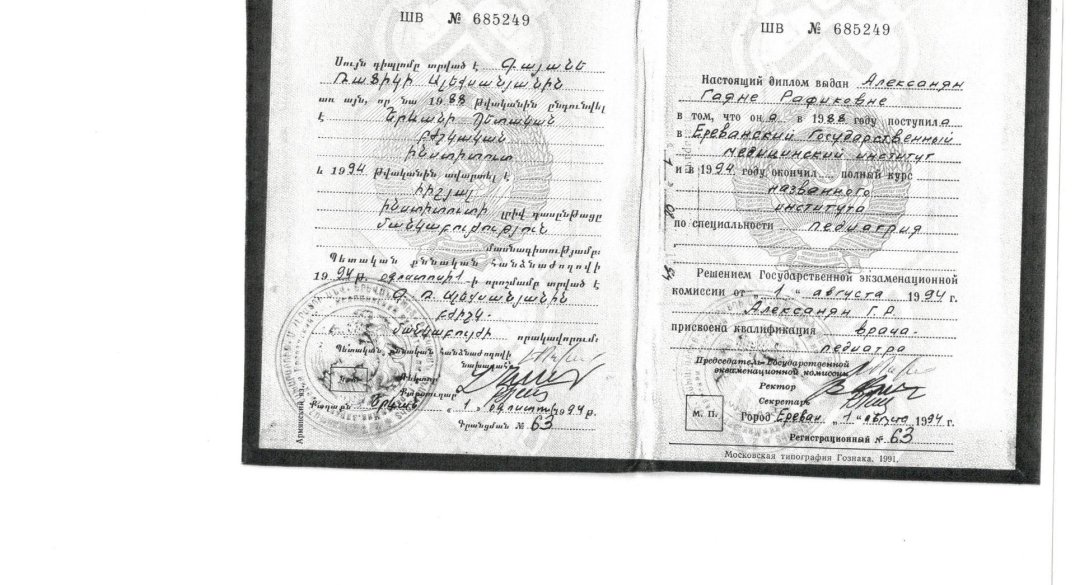 ШВ № 685249
Սույն դիպլոմը տրված է Գայանե
Ռաֆիկի Ալեքսանյանին
առ այն, որ նա 1988 թվականին ընդունվել
է Երևանի պետական
բժշկական
ինստիտուտ
և 1994 թվականին ավարտել է
հիշյալ
ինստիտուտի լրիվ դասընթացը
մանկաբուժություն
մասնագիտությամբ:
Պետական քննական հանձնաժողովի
1994 թ. օգոստոսի 1-ի որոշմամբ տրված է
Գ. Ռ. Ալեքսանյանին
բժիշկ-
մանկաբույժի որակավորում:
Պետական քննական հանձնաժողովի
նախագահ
Ռեկտոր
Քարտուղար
Քաղաքն Երևան „ 1 „ օգոստոսի 1994 թ.
Գրանցման № 63
Армянский яз.
ШВ № 685249
Настоящий диплом выдан Александян
Гаяне Рафиковне
в том, что она в 1988 году поступила
в Ереванский Государственный
медицинский институт
и в 1994 году окончил полный курс
названного
института
по специальности педиатрия
Решением Государственной экзаменационной
комиссии от „ 1 “ августа 1994 г.
Алексанян Г. Р.
присвоена квалификация врача-
педиатра
Председатель Государственной
экзаменационной комиссии
Ректор
Секретарь
М. П. Город Ереван „ 1 “ августа 1994 г.
Регистрационный № 63
Московская типография Гознака. 1991.